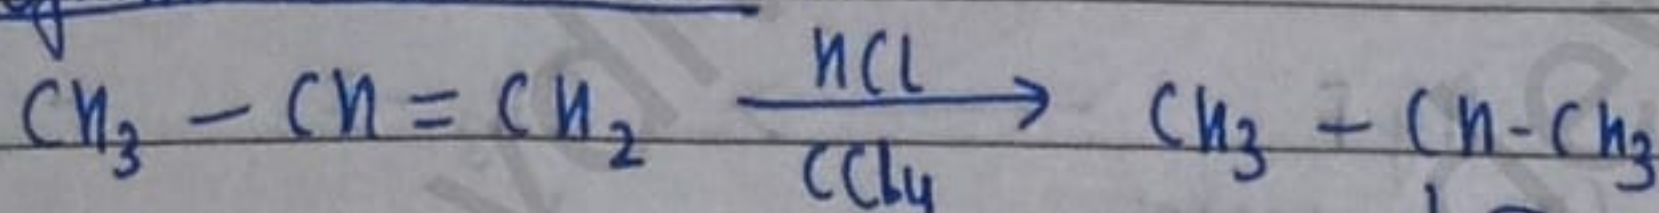 CH₃ – CH = CH₂ —HCl/CCl₄→ CH₃ – CH-CH₃